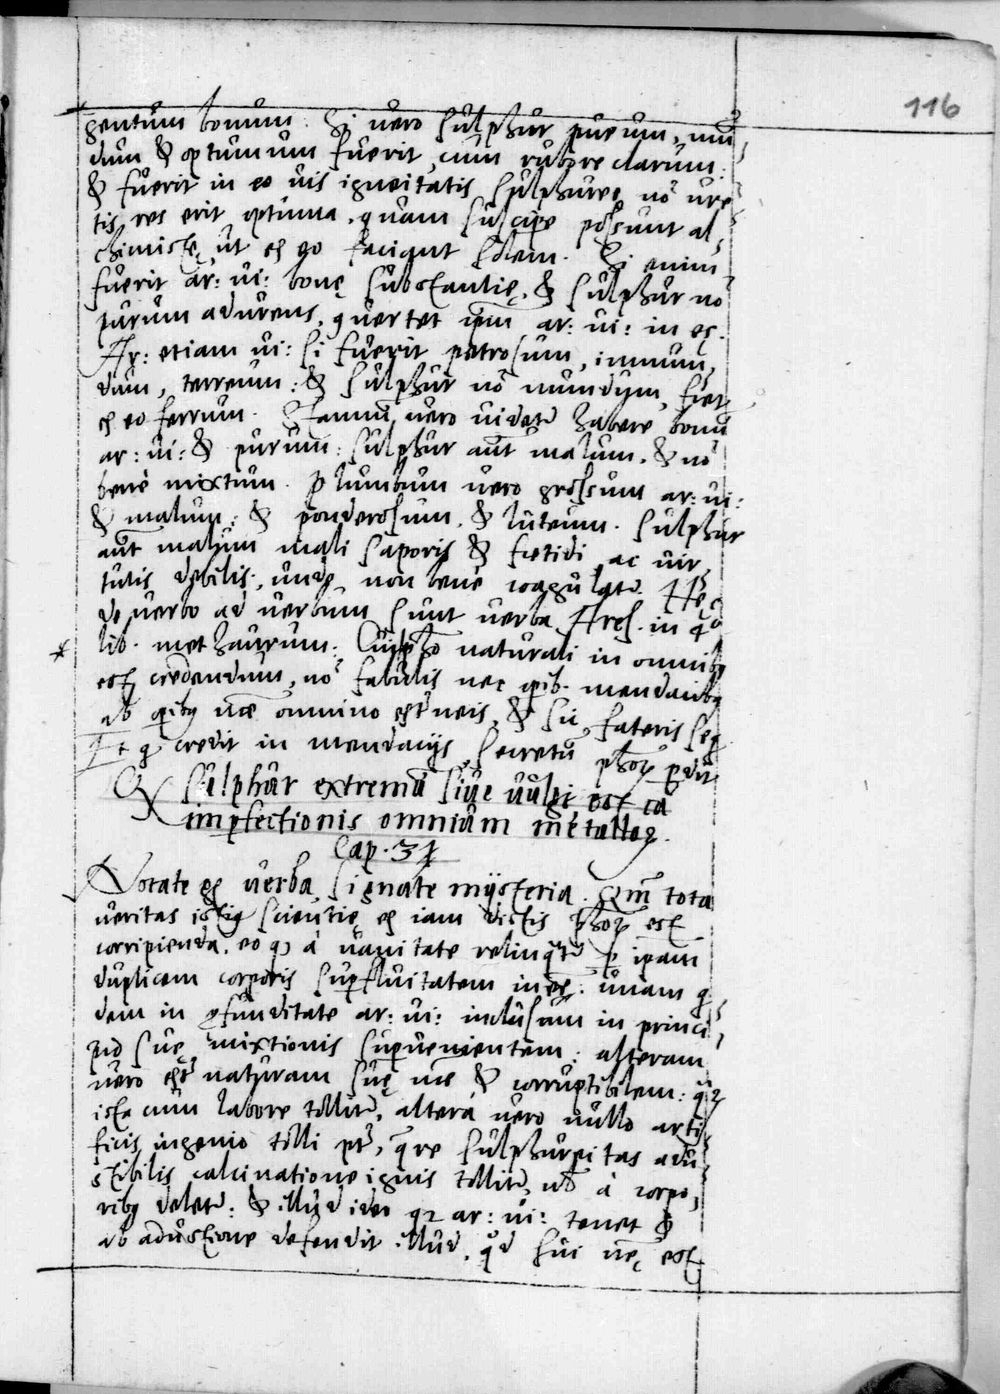 116
gentum bonum. Si vero sulphur purum, mũ
dum & optumum fuerit, cum rubore clarum:
& fuerit in eo vis igneitatis sulphureę nõ urẽ
tis, res erit optima, quam suscipe possunt al,
chimistę, ut ex eo faciant solem. Si enim
fuerit ar: vi: bonę substantię, & sulphur nõ
purum adurens, ꝯvertet ipm̃ ar: vi: in ęs.
Ar: etiam vi: si fuerit petrosum, immun,
dum, terreum: & sulphur nõ mundum, fiet
ex eo ferrum. Stannũ vero videt̃ habere bonũ
ar: vi: & purum: sulphur aũt malum, & nõ
bene mixtum. Plumbum vero grossum ar: vi:
& malum: & ponderosum, & luteum. Sulphur
aũt malum mali saporis & fœtidi, ac vir,
tutis debilis, unde non bene coagulat̃. Hęc
de verbo ad verbum sunt verba Arest. in q̃o
lib. methaurum: Cui pho naturali in omnibꝰ
est credendum, nõ fabulis nec opib. mendacibꝰ
ab opibꝰ nr̃e omnino extraneis, &
Et q credit in mendacijs, secretũ phor̃ ꝑdit
Sulphur extremũ sive vulgi est cã
imꝑfectionis omnium metallorꝝ.
Cap. 31
Notate ęc verba, signate mysteria. Qm̃ tota
veritas istiꝰ scientię ex iam dictis phorꝝ est
corripienda, eo ꝙ à vanitate relinqt̃ ꝑ ipam
duplicem corporis suꝑfluitatem inęę: unam q
dem in ꝓfunditate ar: vi: inclusam in princi,
pio suę mixtionis suꝑvenientem: alteram
vero extr̃ naturam suę nr̃e & corruptibilem: qꝫ
ista cum labore tollit̃, altera vero nullo arti
ficis ingenio tolli pt̃, quare sulphureitas adu
stibilis calcinatione ignis tollit̃, vel à corpo,
ribꝰ delet̃: & illud ideo qꝫ ar: vi: tenet &
ab adustione defendit illud, qd̃ sui nr̃ę est